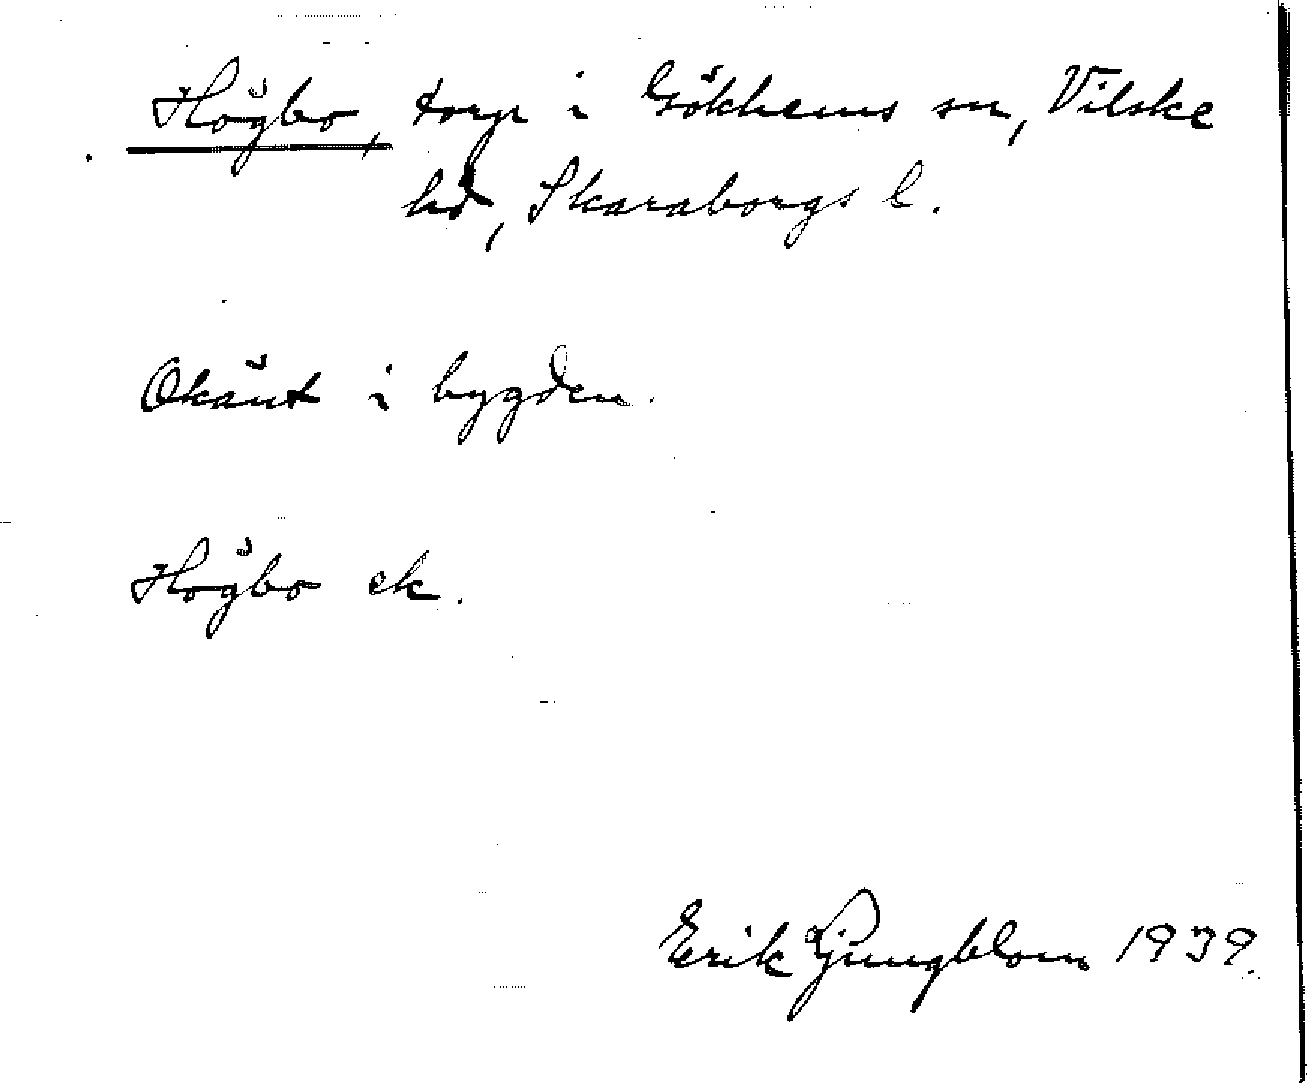 Högbo, torp i Gökhems sn, Vilske
hd, Skaraborgs l.
Okänt i bygden.
Högbo ek.
Erik Ljungblom 1939.